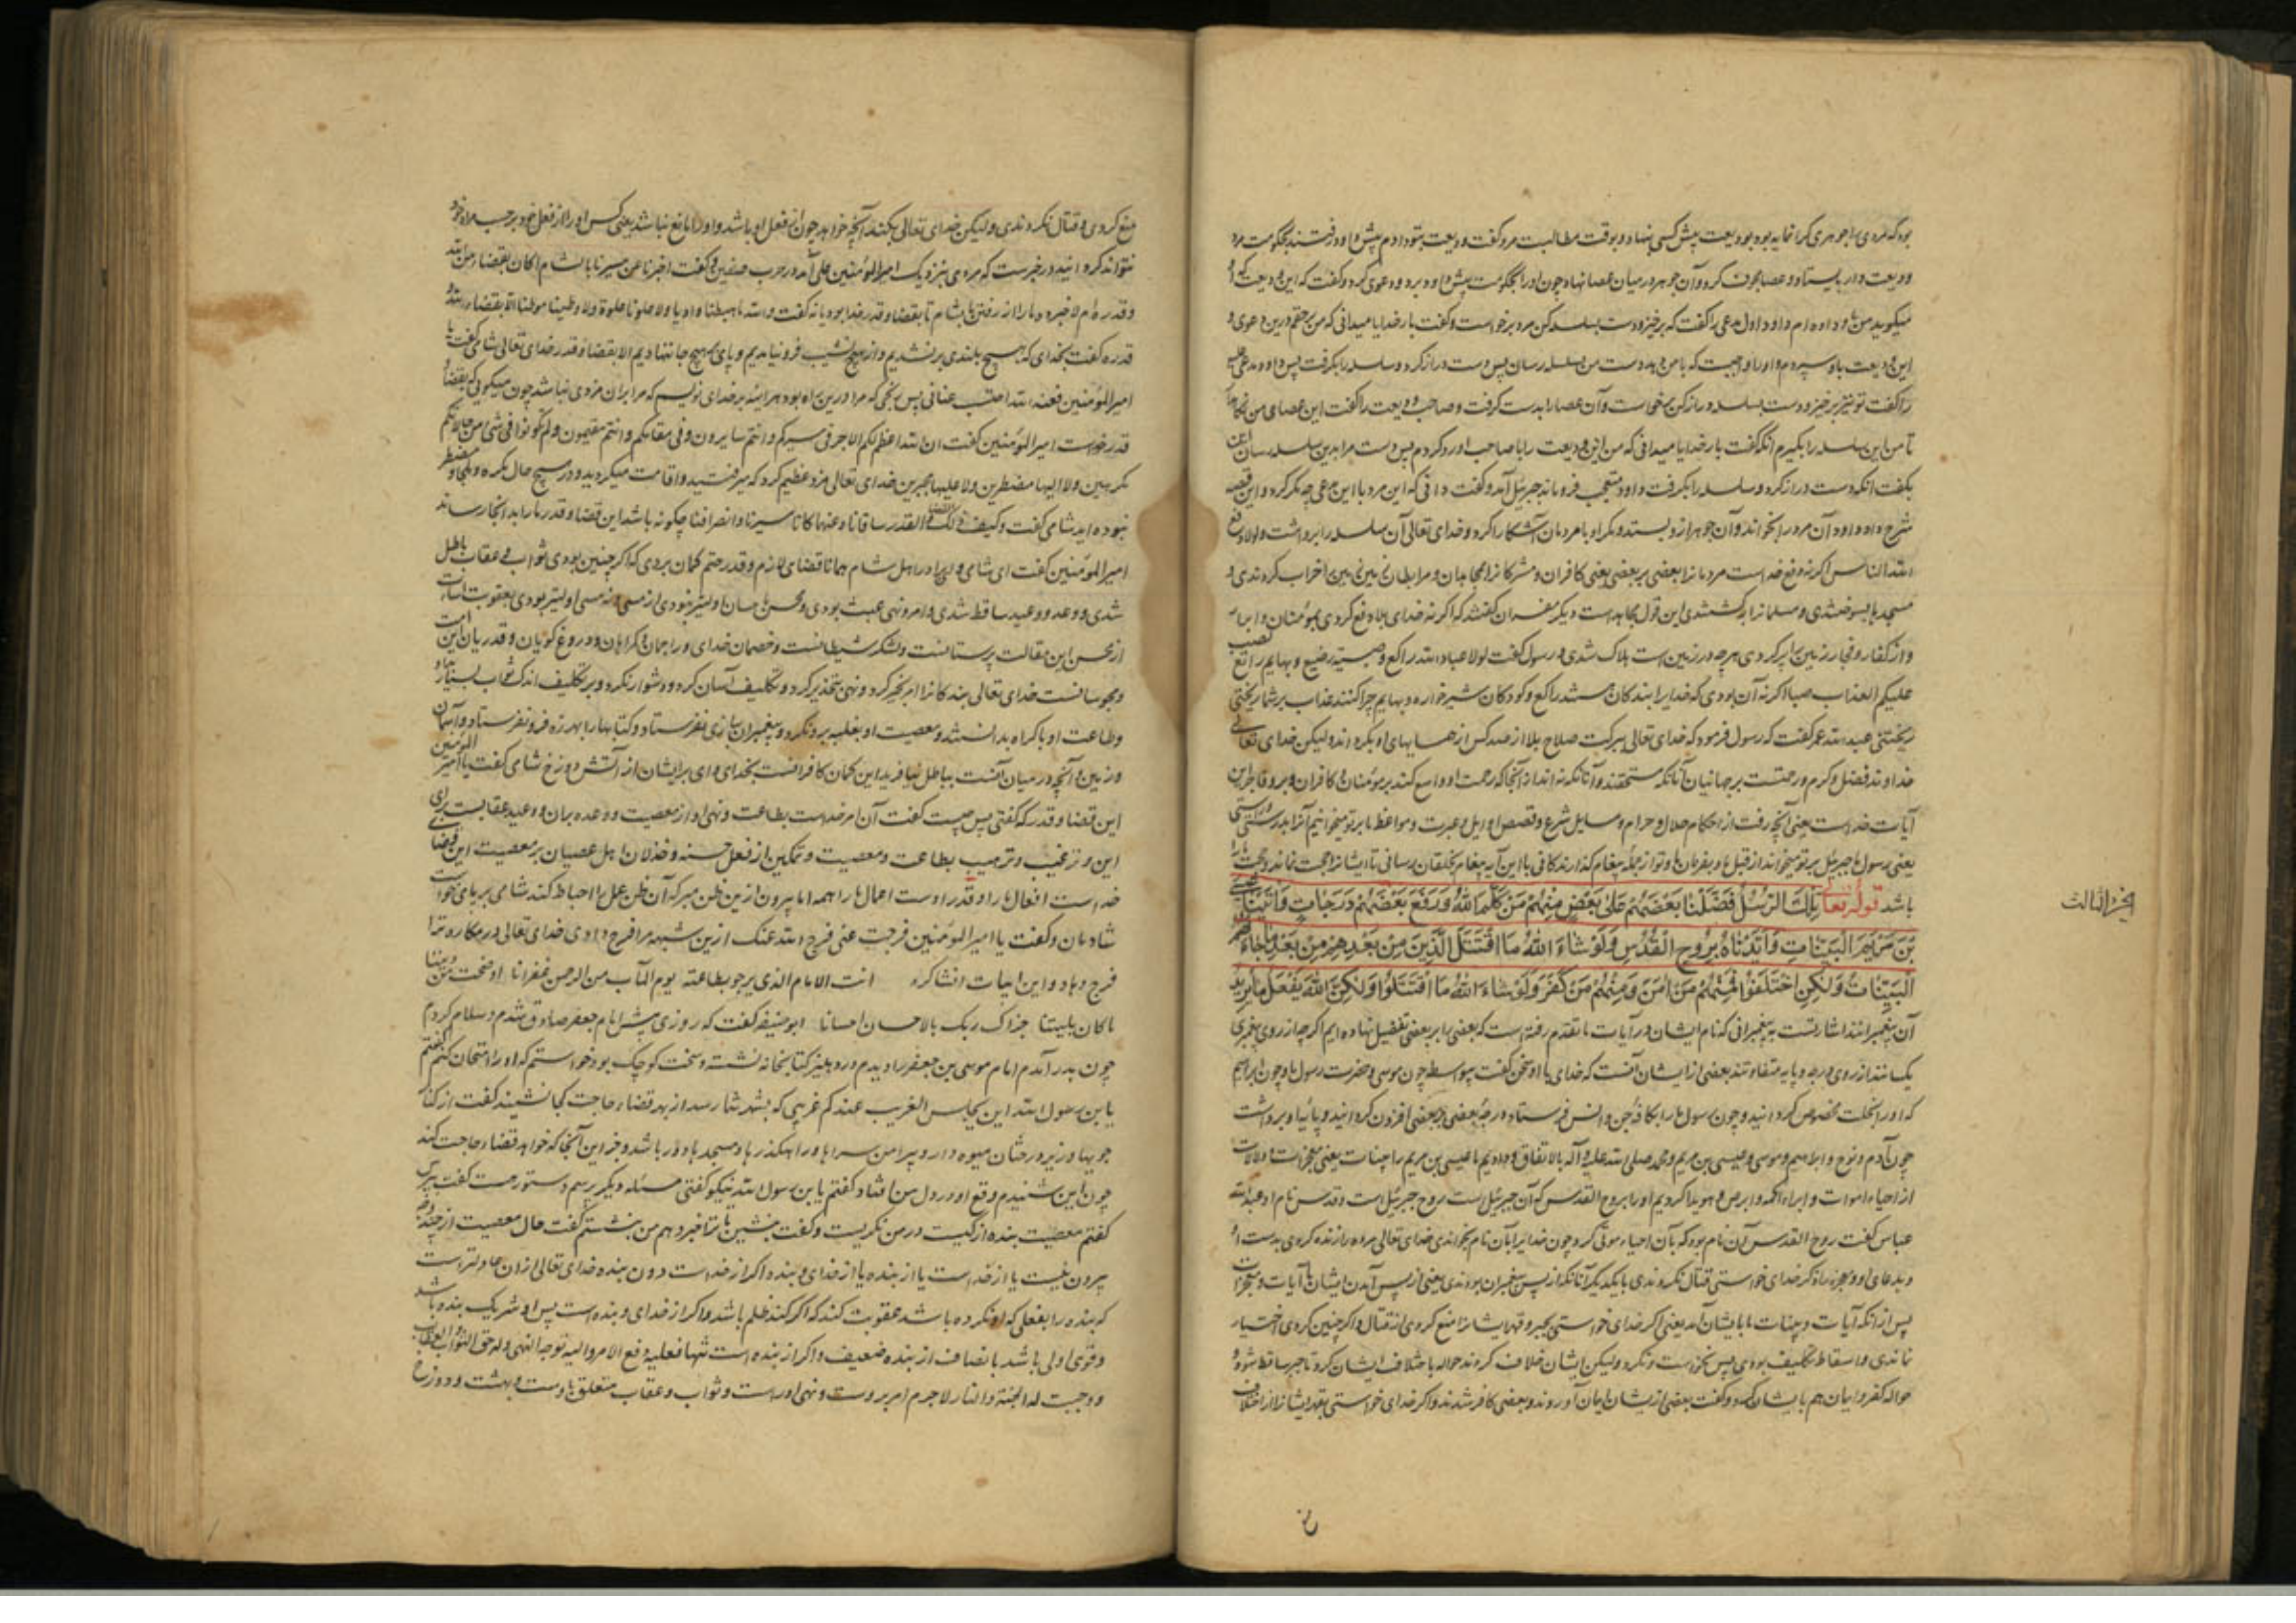 بود که مردی را جوهری گرانمایه بود بودیعت پیش کسی بنهاد و بوقت مطالبت مرد گفت ودیعت بتو دادم پیش داود رفتند بحکومت مرد
ودیعت دار بیستاد و عصا مجوف کرد و آن جوهر در میان عصا نهاد چون او را بحکومت پیش داود برد و دعوی کرد و گفت که این ودیعت که او
میگوید من باو داده ام داود اول مدعی را گفت که برخیز و دست بسلسله کن مرد برخواست و گفت بار خدایا میدانی که من برحقم درین دعوی و
این ودیعت باو سپردم و او را واجبست که با من دهد دست من بسلسله رسان پس دست دراز کرد و سلسله را بگرفت پس داود مدعی علیه
را گفت تو نیز برخیز و دست بسلسله دراز کن برخواست و آن عصا را بدست گرفت و صاحب ودیعت را گفت این عصای من نگاهدار
تا من این سلسله را بگیرم آنگه گفت بار خدایا میدانی که من این ودیعت را با صاحب او رد کردم پس دست مرا بدین سلسله رسان این
بگفت آنگه دست دراز کرد و سلسله را بگرفت داود متعجب فروماند جبرئیل آمد و گفت دانی که این مرد با این مدعی چه مکر کرد و این قصه
شرح داد داود آن مرد را بخواند و آن جوهر ازو بستد و مکر او با مردمان آشکارا کرد و خدای تعالی آن سلسله را برداشت ولولا دفع
الله الناس اگر نه دفع خداست مردمانرا بعضی ببعضی یعنی کافران و مشرکانرا بمجاهدان و مرابطان زمین خراب کردندی و
مسجدها بسوختندی و مسلمانرا بکشتندی این قول مجاهدست دیگر مفسران گفتند که اگر نه خدای بلا دفع کردی بمؤمنان و ابرار
و از کفار و فجار زمین را پر کردی هرچه در زمین است هلاک شدی و رسول گفت لولا عباد الله راکع و صبیة رضیع و بهایم راتع لصب
علیکم العذاب صبا اگر نه آن بودی که خدایرا بندگان هستند راکع و کودکان شیرخواره و بهایم چراکنند عذاب بر شما ریختی
ریختنی عبدالله عمر گفت که رسول فرمود که خدای تعالی ببرکت صلاح بلا از صد کس از همسایهای او بگرداند ولیکن خدای تعالی
خداوند فضل و کرم و رحمتست بر جهانیان آنانکه مستحقند و آنانکه نه اند از آنجا که رحمت او واسع کند بر مؤمنان و کافران و بر و فاجر این
آیات خداست یعنی آنچه رفت از احکام حلال و حرام و مسایل شرع و قصص اوایل و عبرت و مواعظ ما بر تو میخوانیم آنرا بدرستی و راستی
یعنی رسول ما جبرئیل بر تو میخواند از قبل ما و بفرمان ما و تو از جمله پیغام گذارندگانی با این آیه پیغام بخلقان رسانی تا ایشانرا حجت نماند و حجت ما را
باشد قوله تعالی تِلْكَ الرُّسُلُ فَضَّلْنَا بَعْضَهُمْ عَلٰى بَعْضٍ مِنْهُمْ مَنْ كَلَّمَ اللّٰهُ وَرَفَعَ بَعْضَهُمْ دَرَجَاتٍ وَاٰتَيْنَا عِيسَى
بْنَ مَرْيَمَ الْبَيِّنَاتِ وَاَيَّدْنَاهُ بِرُوحِ الْقُدُسِ وَلَوْ شَاءَ اللّٰهُ مَا اقْتَتَلَ الَّذِينَ مِنْ بَعْدِهِمْ مِنْ بَعْدِ مَا جَاءَتْهُمُ
الْبَيِّنَاتُ وَلٰكِنِ اخْتَلَفُوا فَمِنْهُمْ مَنْ اٰمَنَ وَمِنْهُمْ مَنْ كَفَرَ وَلَوْ شَاءَ اللّٰهُ مَا اقْتَتَلُوا وَلٰكِنَّ اللّٰهَ يَفْعَلُ مَا يُرِيدُ
الجزء الثالث
آن پیغمبرانند اشارتست به پیغمبرانی که نام ایشان در آیات ما تقدم رفته است که بعضی را بر بعضی تفضیل نهاده ایم اگرچه از روی پیغمبری
یکسانند از روی درجه و پایه متفاوتند بعضی از ایشان آنست که خدای با او سخن گفت بیواسطه چون موسی و حضرت رسول ما و چون ابراهیم
که او را بخلت مخصوص گردانید و چون رسول ما را بکافه جن و انس فرستاد و درجه بعضی بر بعضی افزون گردانید و پایها برداشت
چون آدم و نوح و ابراهیم و موسی و عیسی بن مریم و محمد صلی الله علیه و آله بالاتفاق و دادیم ما عیسی بن مریم را بینات یعنی معجزات و دلالات
از احیاء اموات و ابراء اکمه و ابرص و هویدا کردیم او را بروح القدس که آن جبرئیل است روح جبرئیل است و قدس نام او عبدالله
عباس گفت روح القدس آن نام بود که بآن احیاء موتی کرد چون خدایرا بآن نام بخواندی خدای تعالی مرده را زنده کردی بدست او
و بدعای او و معجزه او و اگر خدای خواستی قتال نکردندی با یکدیگر آنانکه از پس پیغمبران بودندی یعنی از پس آمدن ایشان با آیات و معجزات
پس از آنکه آیات و بینات ما بایشان آمد یعنی اگر خدای خواستی بجبر و قهر ایشانرا منع کردی از قتال و اگر چنین کردی اختیار
نماندی و اسقاط تکلیف بودی پس نخواست و نکرد ولیکن ایشان خلاف کردند حواله باختلاف ایشان کرد تا جبر ساقط شود و
حواله کفر و ایمان هم بایشان کرد و گفت بعضی از ایشان ایمان آوردند و بعضی کافر شدند و اگر خدای خواستی بقهر ایشانرا از اختلاف
منع کردی و قتال نکردندی ولیکن خدای تعالی بکند آنچه خواهد چون از فعل او باشد و او را مانع نباشد یعنی کس او را از فعل خود بر حسب مراد خود
نتواند گردانید و در خبرست که مردی بنزدیک امیرالمؤمنین علی آمد در حرب صفین و گفت اخبرنا عن مسیرنا بالشام اکان بقضاء من الله
و قدره ام لا خبر ده ما را از رفتن ما بشام تا بقضا و قدر خدا بود یا نه گفت والله ما هبطنا وادیا ولا علونا تلعة ولا وطینا موطنا الا بقضاء الله و
قدره گفت بخدای که بهیچ بلندی برنشدیم و از هیچ نشیب فرونیامدیم و پای بهیچ جا ننهادیم الا بقضا و قدر خدای تعالی شامی گفت یا
امیرالمؤمنین فعند الله احتسب عنائی پس رنجی که مرا درین راه بود هراینه بر خدای نویسم که مرا بران مزدی نباشد چون میگویی که بقضا و
قدر خداست امیرالمؤمنین گفت ان الله اعظم لکم الاجر فی مسیرکم وانتم سایرون وفی مقامکم وانتم مقیمون ولم تکونوا فی شئ من حالاتکم
مکرهین ولا الیها مضطرین ولا علیها مجبرین خدای تعالی مزد عظیم کرد که میرفتید و اقامت میکردید و در هیچ حال مکره و ملجا و مضطر
نبوده اید شامی گفت وکیف ذلک والقضا والقدر ساقانا وعنهما کانا مسیرنا وانصرافنا چگونه باشد این قضا و قدر ما را بدانجا رساند
امیرالمؤمنین گفت ای شامی و ای برادر اهل شام همانا قضای لازم و قدر حتم گمان بردی که اگر چنین بودی ثواب و عقاب باطل
شدی و وعد و وعید ساقط شدی و امر و نهی عبث بودی و محسن باحسان اولیتر نبودی از مسی و نه مسی اولیتر بودی بعقوبت اساءت
از محسن این مقالت بت پرستانست و لشکر شیطانست و خصمان خدای و راهمان گمراهان و دروغ گویان و قدریان این امت
و مجوسانست خدای تعالی بندگانرا امر بخیر کرد و نهی تحذیر کرد و تکلیف آسان کرد و دشوار نکرد و بر تکلیف اندک ثواب بسیار داد
و طاعت او باکراه بدانستند و معصیت او بغلبه برونکرد و پیغمبران ببازی نفرستاد و کتابها را بهرزه فرونفرستاد و آسمان
و زمین و آنچه در میان آنست بباطل نیافرید این گمان کافرانست بخدای وای بر ایشان از آتش دوزخ شامی گفت یا امیر المؤمنین
این قضا و قدر که گفتی پس چیست گفت آن امر خداست بطاعت و نهی او از معصیت و وعده بران و وعید عقابست برای
این و ترغیب و ترهیب بطاعت و معصیت و تمکین از فعل حسنه و خذلان اهل عصیان بر معصیت این قضای
خداست افعال ما را و قدر اوست اعمال ما را همه اما بیرون ازین ظن مبر که آن ظن عمل را احباط کند شامی بر پای خواست
شادمان و گفت یا امیرالمؤمنین فرجت عنی فرج الله عنک ازین شبهه مرا فرج دادی خدای تعالی در مکاره ترا
فرج دهاد و این ابیات انشا کرد انت الامام الذی یرجو بطاعته یوم المآب من الرحمن غفرانا اوضحت من دیننا
ما کان ملتبسا جزاک ربک بالاحسان احسانا ابوحنیفه گفت که روزی پیش امام جعفر صادق شدم و سلام کردم
چون بدر آمدم امام موسی بن جعفر را دیدم در دهلیز کتابخانه نشسته و سخت کوچک بود خواستم که او را امتحان کنم گفتم
یابن رسول الله این یجلس الغریب عندکم غریبی که بشهر شما رسد از بهر قضاء حاجت کجا نشیند گفت از کنار
جویها و زیر درختان میوه دار و پیرامن سراها و راهگذرها و مسجدها دور باشد و جز این آنجا که خواهد قضاء حاجت کند
چون این شنیدم وقع او در دل من افتاد گفتم یابن رسول الله نیکو گفتی مسئله دیگر پرسم دستور هست گفت بپرس
گفتم معصیت بنده از کیست در من نگریست و گفت بنشین تا ترا خبر دهم من بنشستم گفت حال معصیت از چند وجه
بیرون نیست یا از خداست یا از بنده یا از خدای و بنده اگر از خداست دون بنده خدای تعالی ازان عادلترست
که بنده را بفعلی که او نکرده باشد عقوبت کند که اگر کند ظلم باشد و اگر از خدای و بنده است پس او شریک بنده باشد
و قوی اولی باشد بانصاف از بنده ضعیف و اگر از بنده است تنها فعلیه وقع الامر والیه توجه النهی وله حق الثواب والعقاب
ووجبت له الجنة والنار لاجرم امر بروست و نهی اوراست و ثواب و عقاب متعلق باوست و بهشت و دوزخ